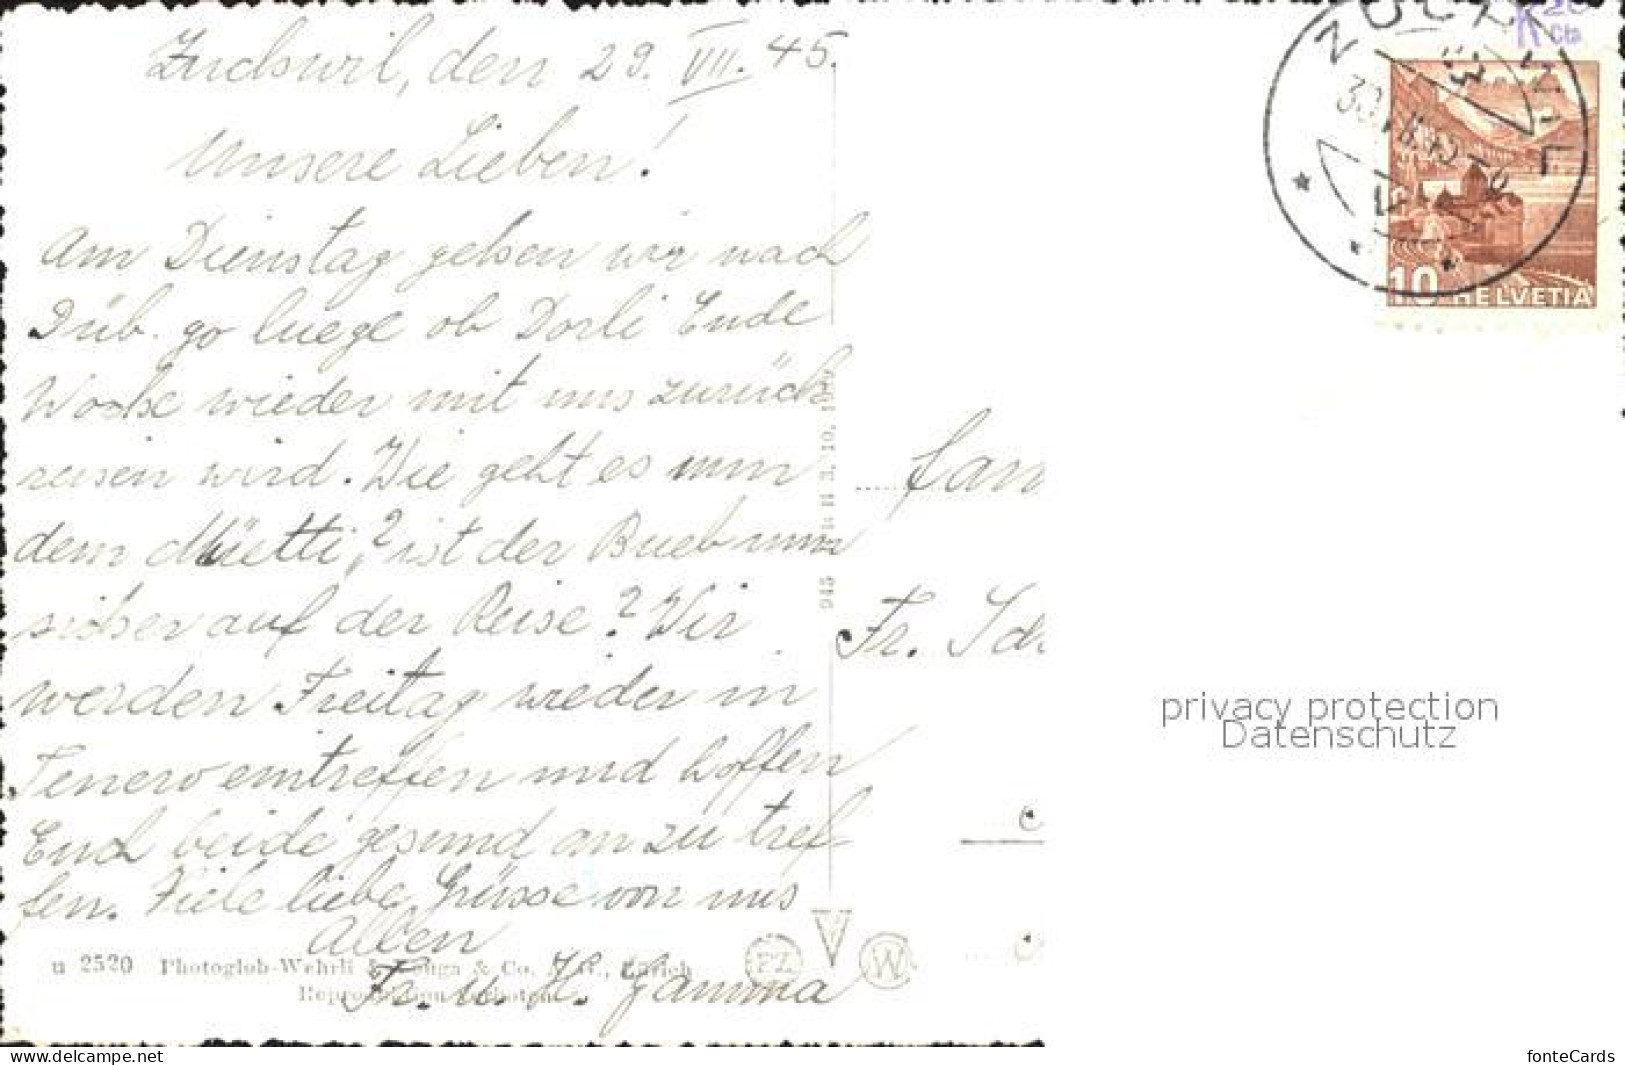 Zuchwil, den 29. VII. 45.
Unsere Lieben!
Am Dienstag gehen wir nach
Düb. go luege ob Dorli Ende
Woche wieder mit uns zurück
reisen wird. Wie geht es nun
dem Müetti,? ist der Bueb nun
sicher auf der Reise? Wir
werden Freitag wieder in
Tenero eintreffen und hoffen
Euch beide gesund an zu tref-
fen. Viele liebe Grüsse von uns
Allen
Fr. u. H. Gamma
u 2520 Photoglob-Wehrli & Vouga & Co. A. G., Zürich
Reproduktion verboten
945 H 3. 10. 1939
PZ
V
W
Fam
Fr. Sch
ZUCHWIL
10 HELVETIA
Cts
privacy protection
Datenschutz
www.delcampe.net
fonteCards